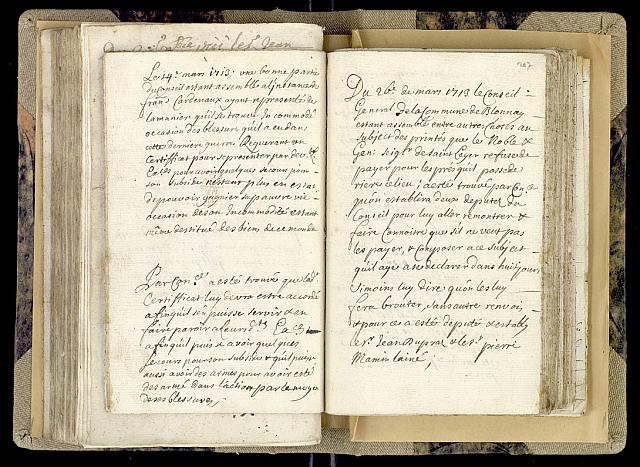 Le 14e mars 1713; une bonne partie
du Conseil estant assemblé a l'instance de
fran: Cardenaux ayant representé de
la maniere qu'il se trouve Incommodé
occasion des blessure qu'il a eu dans
cette derniere guerre Requerant un
Certifficat pour se presenter par dev:
pour avoir quelques secours pour
son subside n'estant plus en estat
de pouvoir gagnier sa pauvre vie
occasion de son Incommodité estant
même destitué des biens de ce monde
Par Con:ce a esté trouvé que led:
Certifficat luy devra estre accordé
affin qu'il s'en puisse servir & en
faire paroir a leurd:
affin qu'il puis a avoir quelques
secours pour son subsiste & qu'il puisse
aussi avoir des armes pour avoir esté
desarmé dans l'action par le moyen
de ses blessures;
247
Du 26e de mars 1713 le Conseil
General De la Commune de Blonnay
estant assemblé entre autres choses au
subject des printés que le Noble &
Gen: seigr de saint Leger refuse de
payer pour les prés qu'il possede
riere ce lieu; a esté trouvé par Con:ce
qu'on establira deux deputez du
Conseil pour luy aller remontrer &
faire Connoitre que s'il ne veut pas
les payer, & Composer a ce subject
qu'il aye a se declarer dans huit jours
Simoins luy dire qu'on les luy
fera brouter, sans autre renvoi
& pour ce a esté deputé & estably
le sr Jean Dupraz & le sr pierre
Mamin lainé;